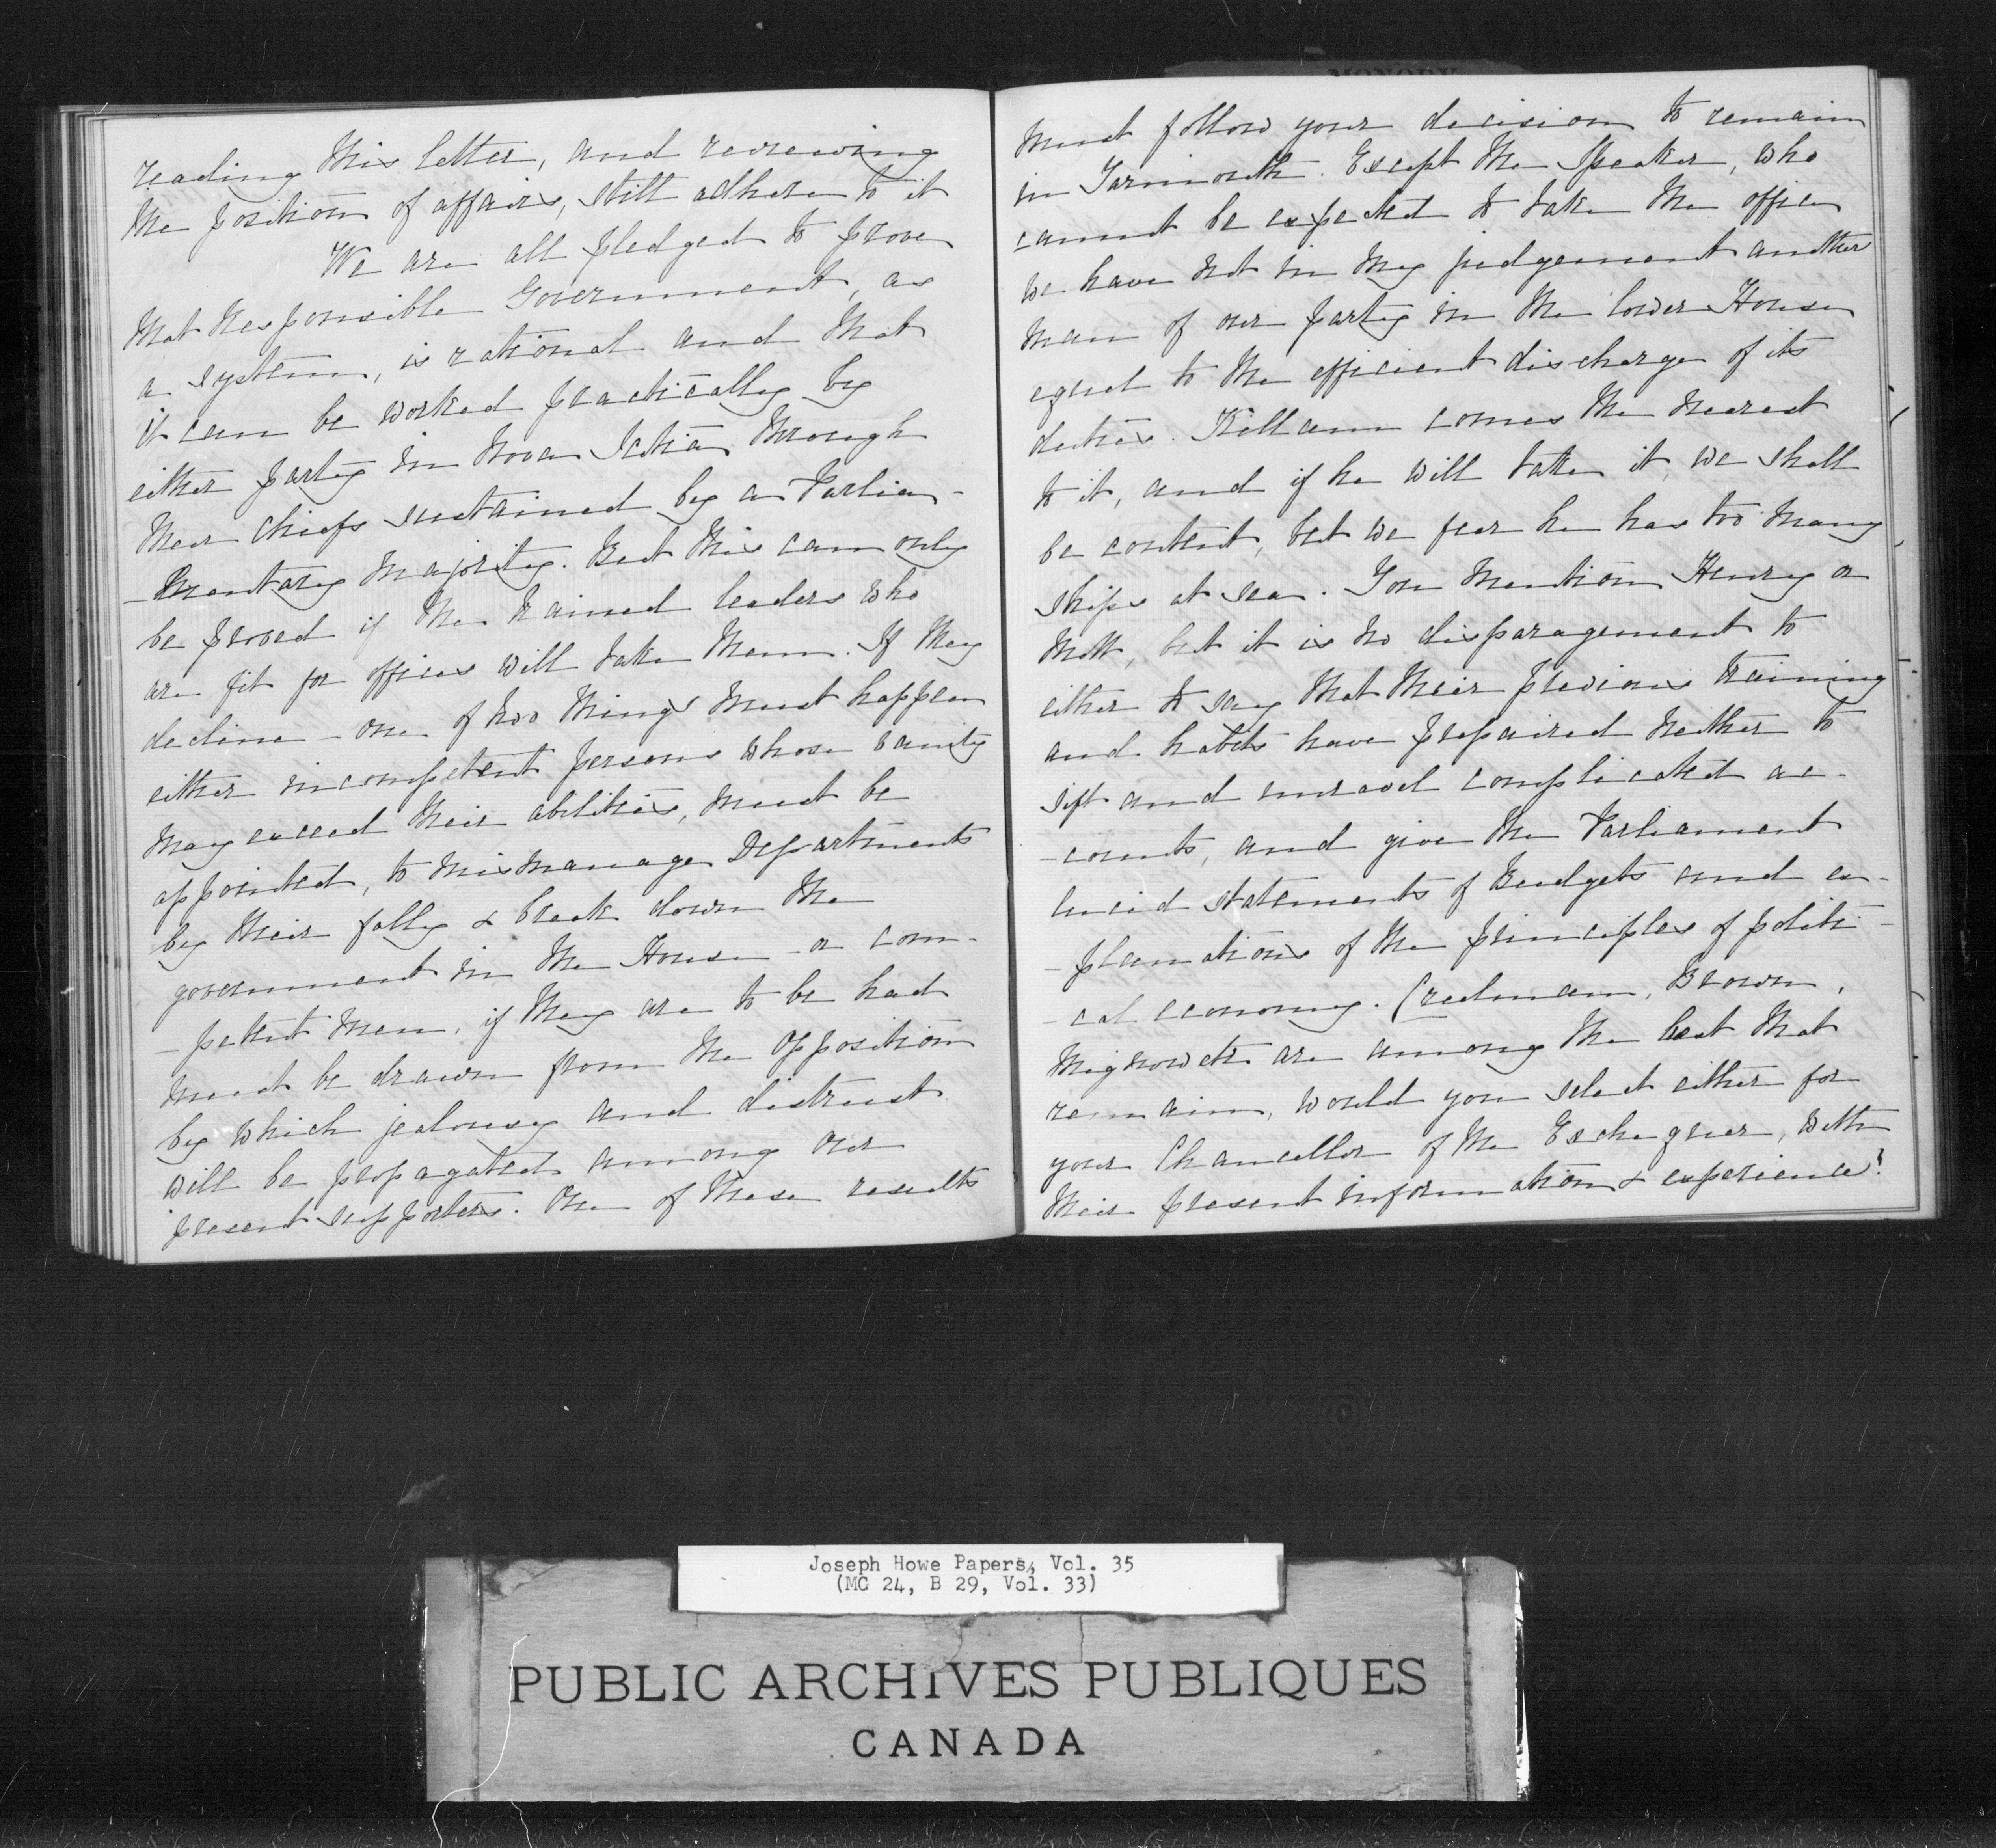 reading this letter, and reviewing
the position of affairs, still adhere to it
We are all pledged to prove
that Responsible Government, as
a system, is rational and that
it can be worked practically by
either party in Nova Scotia through
their chiefs sustained by a Parlia-
-mentary majority. But this can only
be proved if the trained leaders who
are fit for offices will take them. If they
decline - one of two things must happen
either incompetent persons whose vanity
may exceed their abilities, must be
appointed, to mismanage Departments
by their folly & break down the
government in the House - or com-
-petent men, if they are to be had
must be drawn from the opposition
by which jealousy and distrust
will be propagated among our
present supporters. One of these results
must follow your decision to remain
in Yarmouth. Except the Speaker, who
cannot be expected to take the office
we have not in my judgement another
man of our party in the lower House
equal to the efficient discharge of its
duties. Killam comes the nearest
to it, and if he will take it, we shall
be content, but we fear he has too many
ships at sea. You mention Henry or
Mott, but it is no disparagement to
either to say that their previous training
and habits have prepaired neither to
sift and unravel complicated ac-
-counts, and give the Parliament
lucid statements of Budgets and ex-
-planations of the principles of politi-
-cal economy. Creelman, Brown,
Mignowitz are among the best that
remain, would you select either for
your Chancellor of the Exchequer, with
their present information & experience?
MONORY
Joseph Howe Papers, Vol. 35
(MG 24, B 29, Vol. 33)
PUBLIC ARCHIVES PUBLIQUES
CANADA